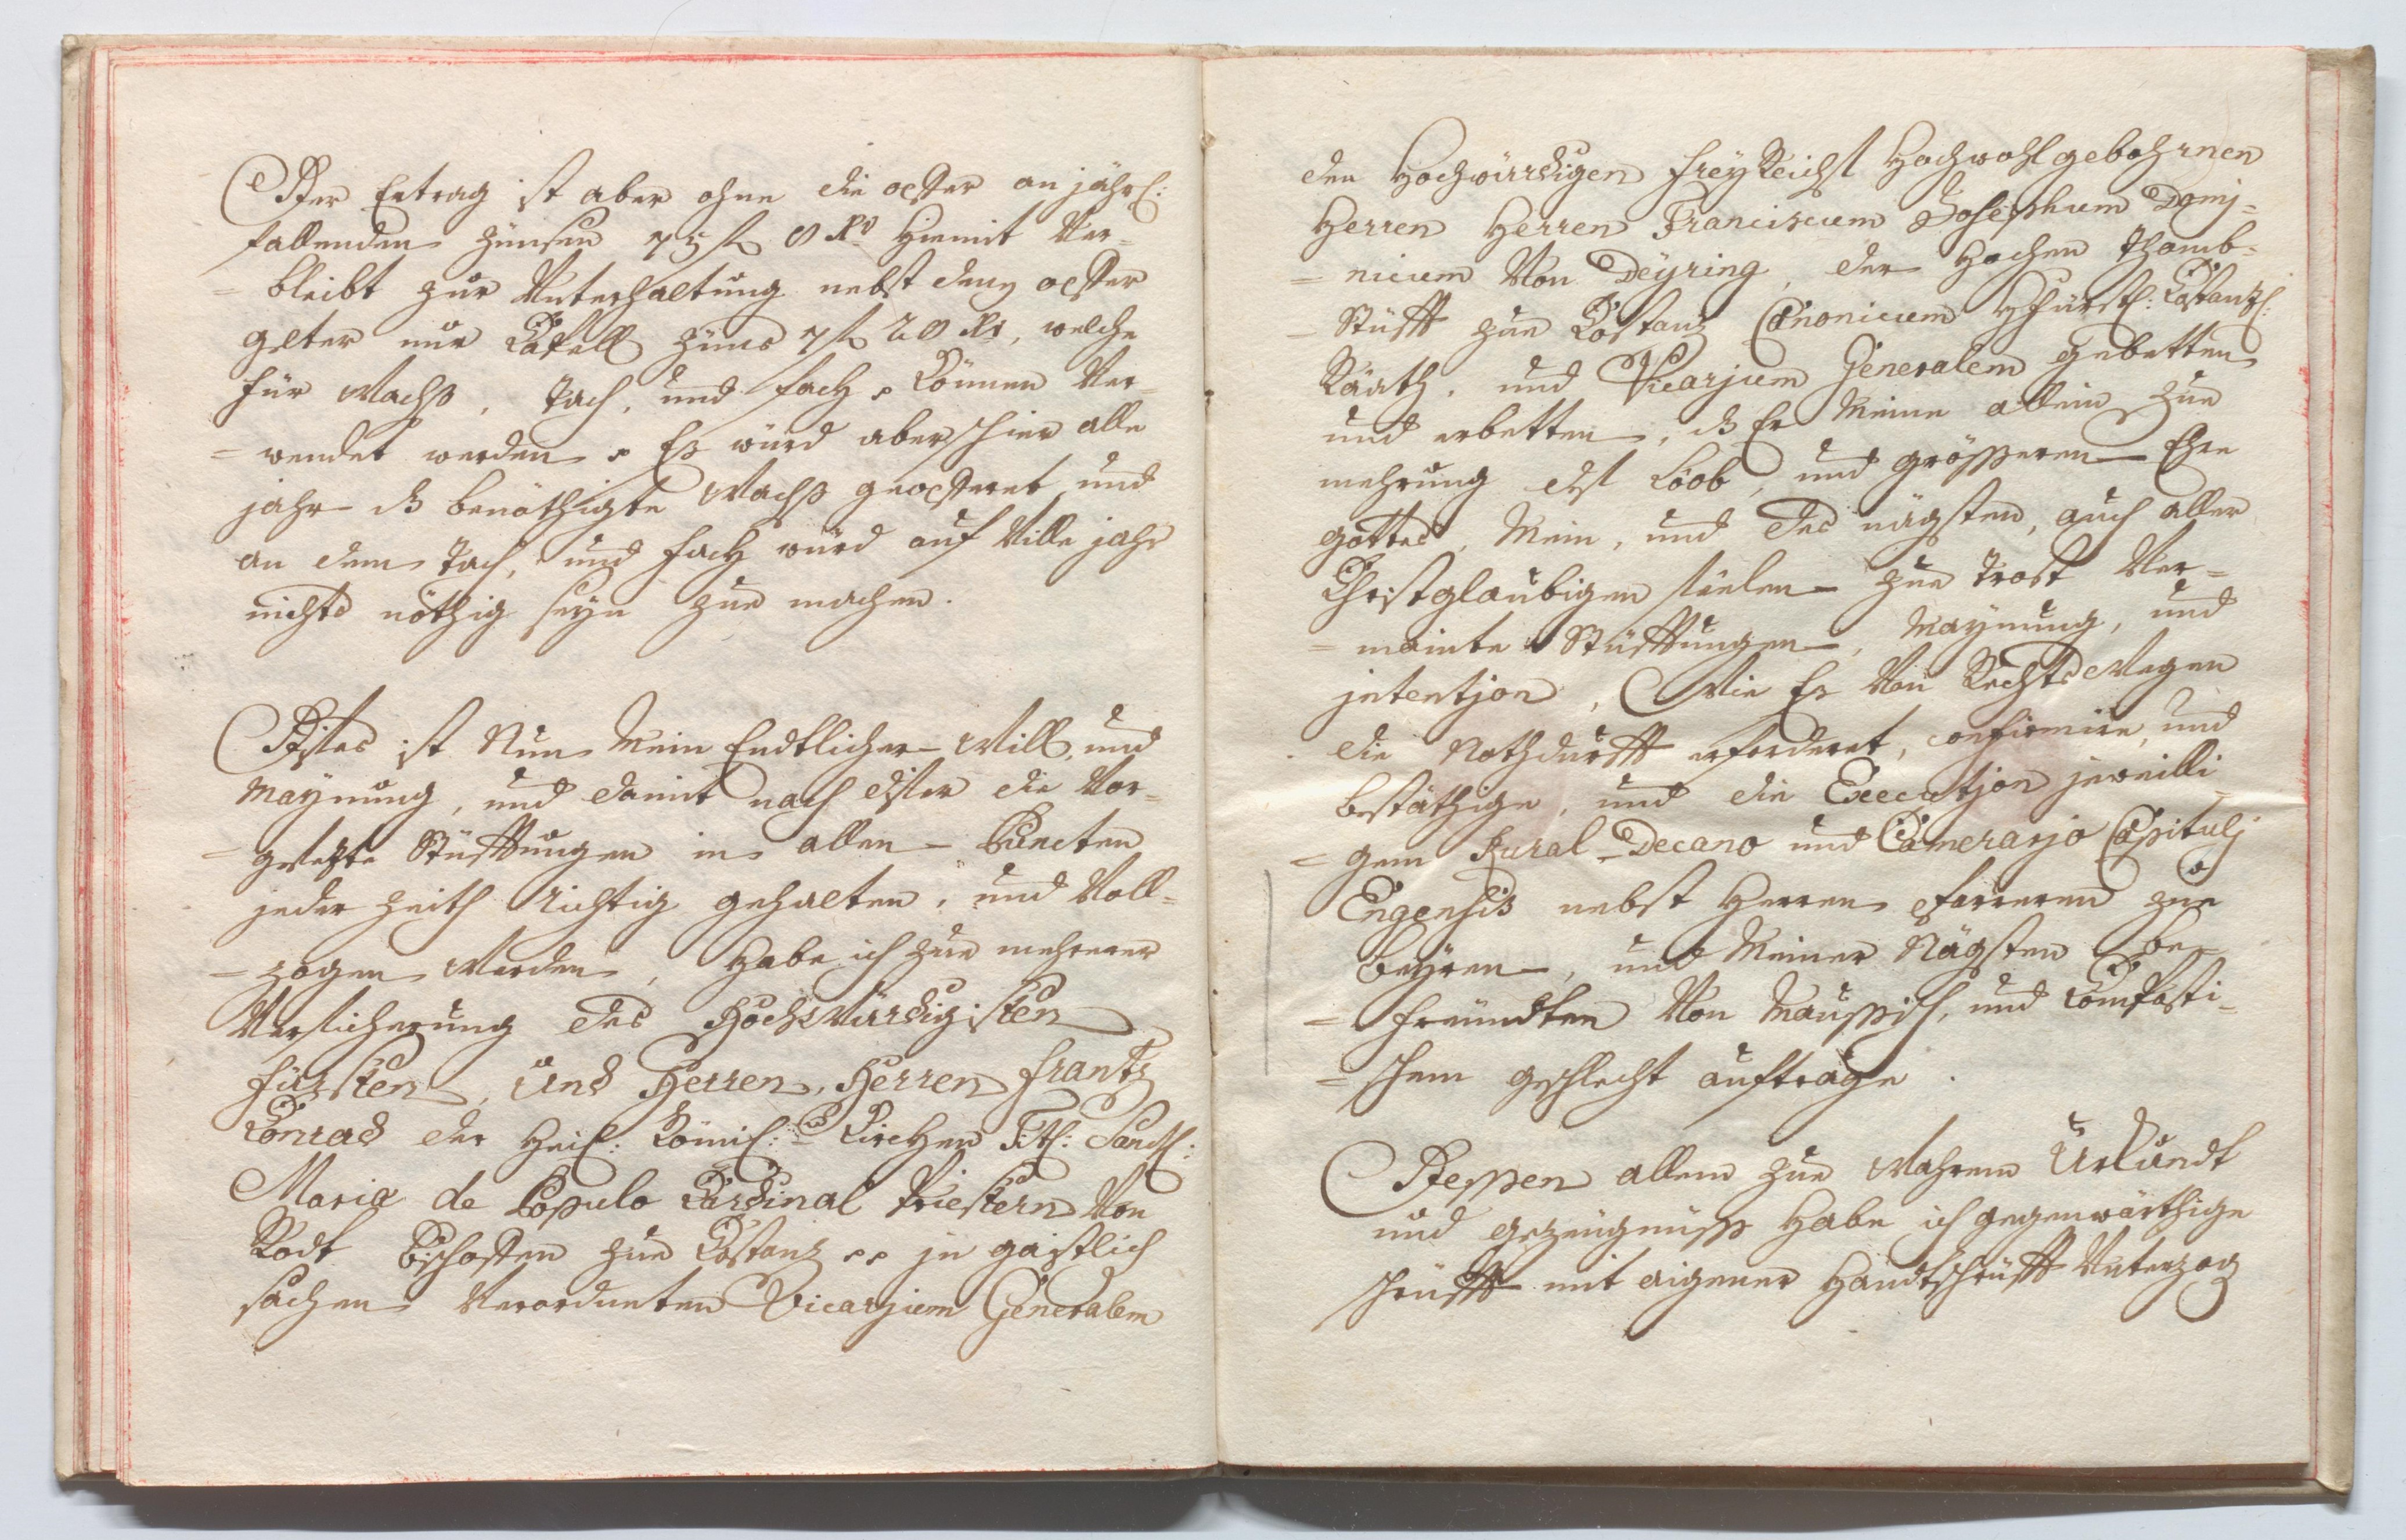 Der Ertrag ist aber ohne die opfer an jährl:
fallenden Zünsen 75 fl 8 Kr Hiemit Ver-
= bleibt zur Unterhaltung nebst dem opfer
gelter nur Capell Züns 7 fl 20 Kr, welche
für Wachs, Tach, und fach, können Ver-
= wendet werden. Es würd aber schier alle
jahr ds benöthigte Wachs geopferet und
an dem Tach, und fach würd auf Ville jahr
nichts nöthig seyn zue machen.
Dises ist Nun Mein Endtlicher Will, und
Maynung, und damit nach diser die Vor-
= gesetzte Stüfftungen in allen Puncten
jeder Zeith Richtig gehalten, und Voll-
= zogen Werden, Habe ich zue mehrerer
Versicherung des Hochwürdigisten
Fürsten, Und Herren, Herren Frantz
Conrad der Heil: Römis: Kirchen Titl: Sanctae:
Maria de Populo Cardinal Priestern Von
Rodt Bischoffen zue Costantz in gaistlich
sachen Verordneten Vicarjum Generalem
den Hochwürdigen frey Reichs Hochwohlgebohrnen
Herren Herren Franciscum Josephum Domj-
= nicum Von Deÿring, der Hochen Thomb-
= Stüfft zue Costanz Canonicum Hfürstl: Costantzl:
Räath, und Vicarjum Generalem gebetten
und erbetten, ds Er Meine allein zue
mehrung des Loob, und grösseren Ehre
Gottes, Mein, und des nägsten, auch aller
Christglaubigen seelen zue Trost Ver-
= mainte Stüfftungen, Maynung, und
jntentjon, Wie Es Von Rechts Wegen
die Nothdurfft erforderet, confirmire, und
bestäthige, und die Executjon jeweilli-
= gem Rural-Decano und Camerarjo Capitulj
Engensis nebst Herren Pfarreren zue
Beÿren, und Meiner Nägsten be-
= freundten Von Maussischen, und
= schem geschlecht auftrage.
Dessen allem zue Wahrem Urkundt
und gezeugnuss Habe ich gegenwärthige
schrüfft mit aigener Handtschrüfft Unterzog